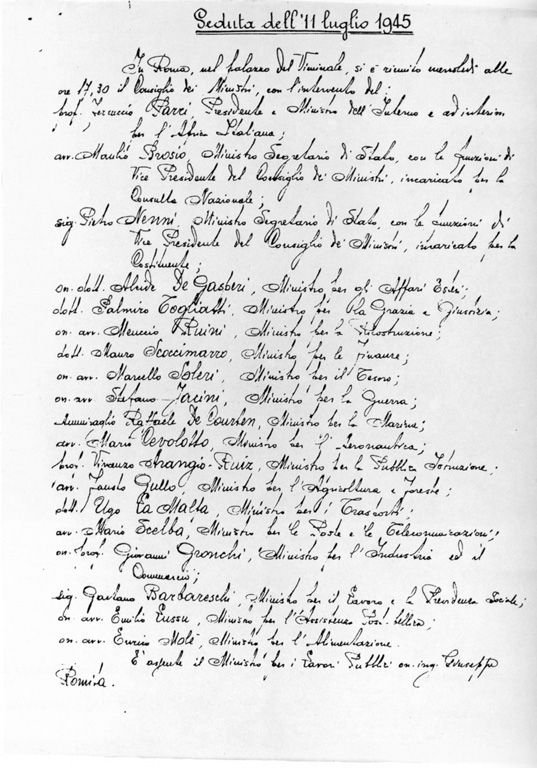 Seduta dell'11 luglio 1945
In Roma, nel palazzo del Viminale, si è riunito mercoledì alle
ore 17,30 il Consiglio dei Ministri, con l'intervento del:
prof. Ferruccio Parri, Presidente e Ministro dell'Interno e ad interim
per l'Africa Italiana;
avv. Manlio Brosio, Ministro Segretario di Stato, con le funzioni di
Vice Presidente del Consiglio dei Ministri, incaricato per la
Consulta Nazionale;
sig. Pietro Nenni, Ministro Segretario di Stato, con le funzioni di
Vice Presidente del Consiglio dei Ministri, incaricato per la
Costituente;
on. dott. Alcide De Gasperi, Ministro per gli Affari Esteri;
dott. Palmiro Togliatti, Ministro per la Grazia e Giustizia;
on. avv. Meuccio Ruini, Ministro per la Ricostruzione;
dott. Mauro Scoccimarro, Ministro per le Finanze;
on. avv. Marcello Soleri, Ministro per il Tesoro;
on. avv. Stefano Jacini, Ministro per la Guerra;
Ammiraglio Raffaele De Courten, Ministro per la Marina;
avv. Mario Cevolotto, Ministro per l'Aeronautica;
prof. Vincenzo Arangio-Ruiz, Ministro per la Pubblica Istruzione;
avv. Fausto Gullo, Ministro per l'Agricoltura e Foreste;
dott. Ugo La Malfa, Ministro per i Trasporti;
avv. Mario Scelba, Ministro per le Poste e le Telecomunicazioni;
on. prof. Giovanni Gronchi, Ministro per l'Industria ed il
Commercio;
sig. Gaetano Barbareschi, Ministro per il Lavoro e la Previdenza Sociale;
on. avv. Emilio Lussu, Ministro per l'Assistenza Post-bellica;
on. avv. Enrico Molè, Ministro per l'Alimentazione.
E' assente il Ministro per i Lavori Pubblici on. ing. Giuseppe
Romita.